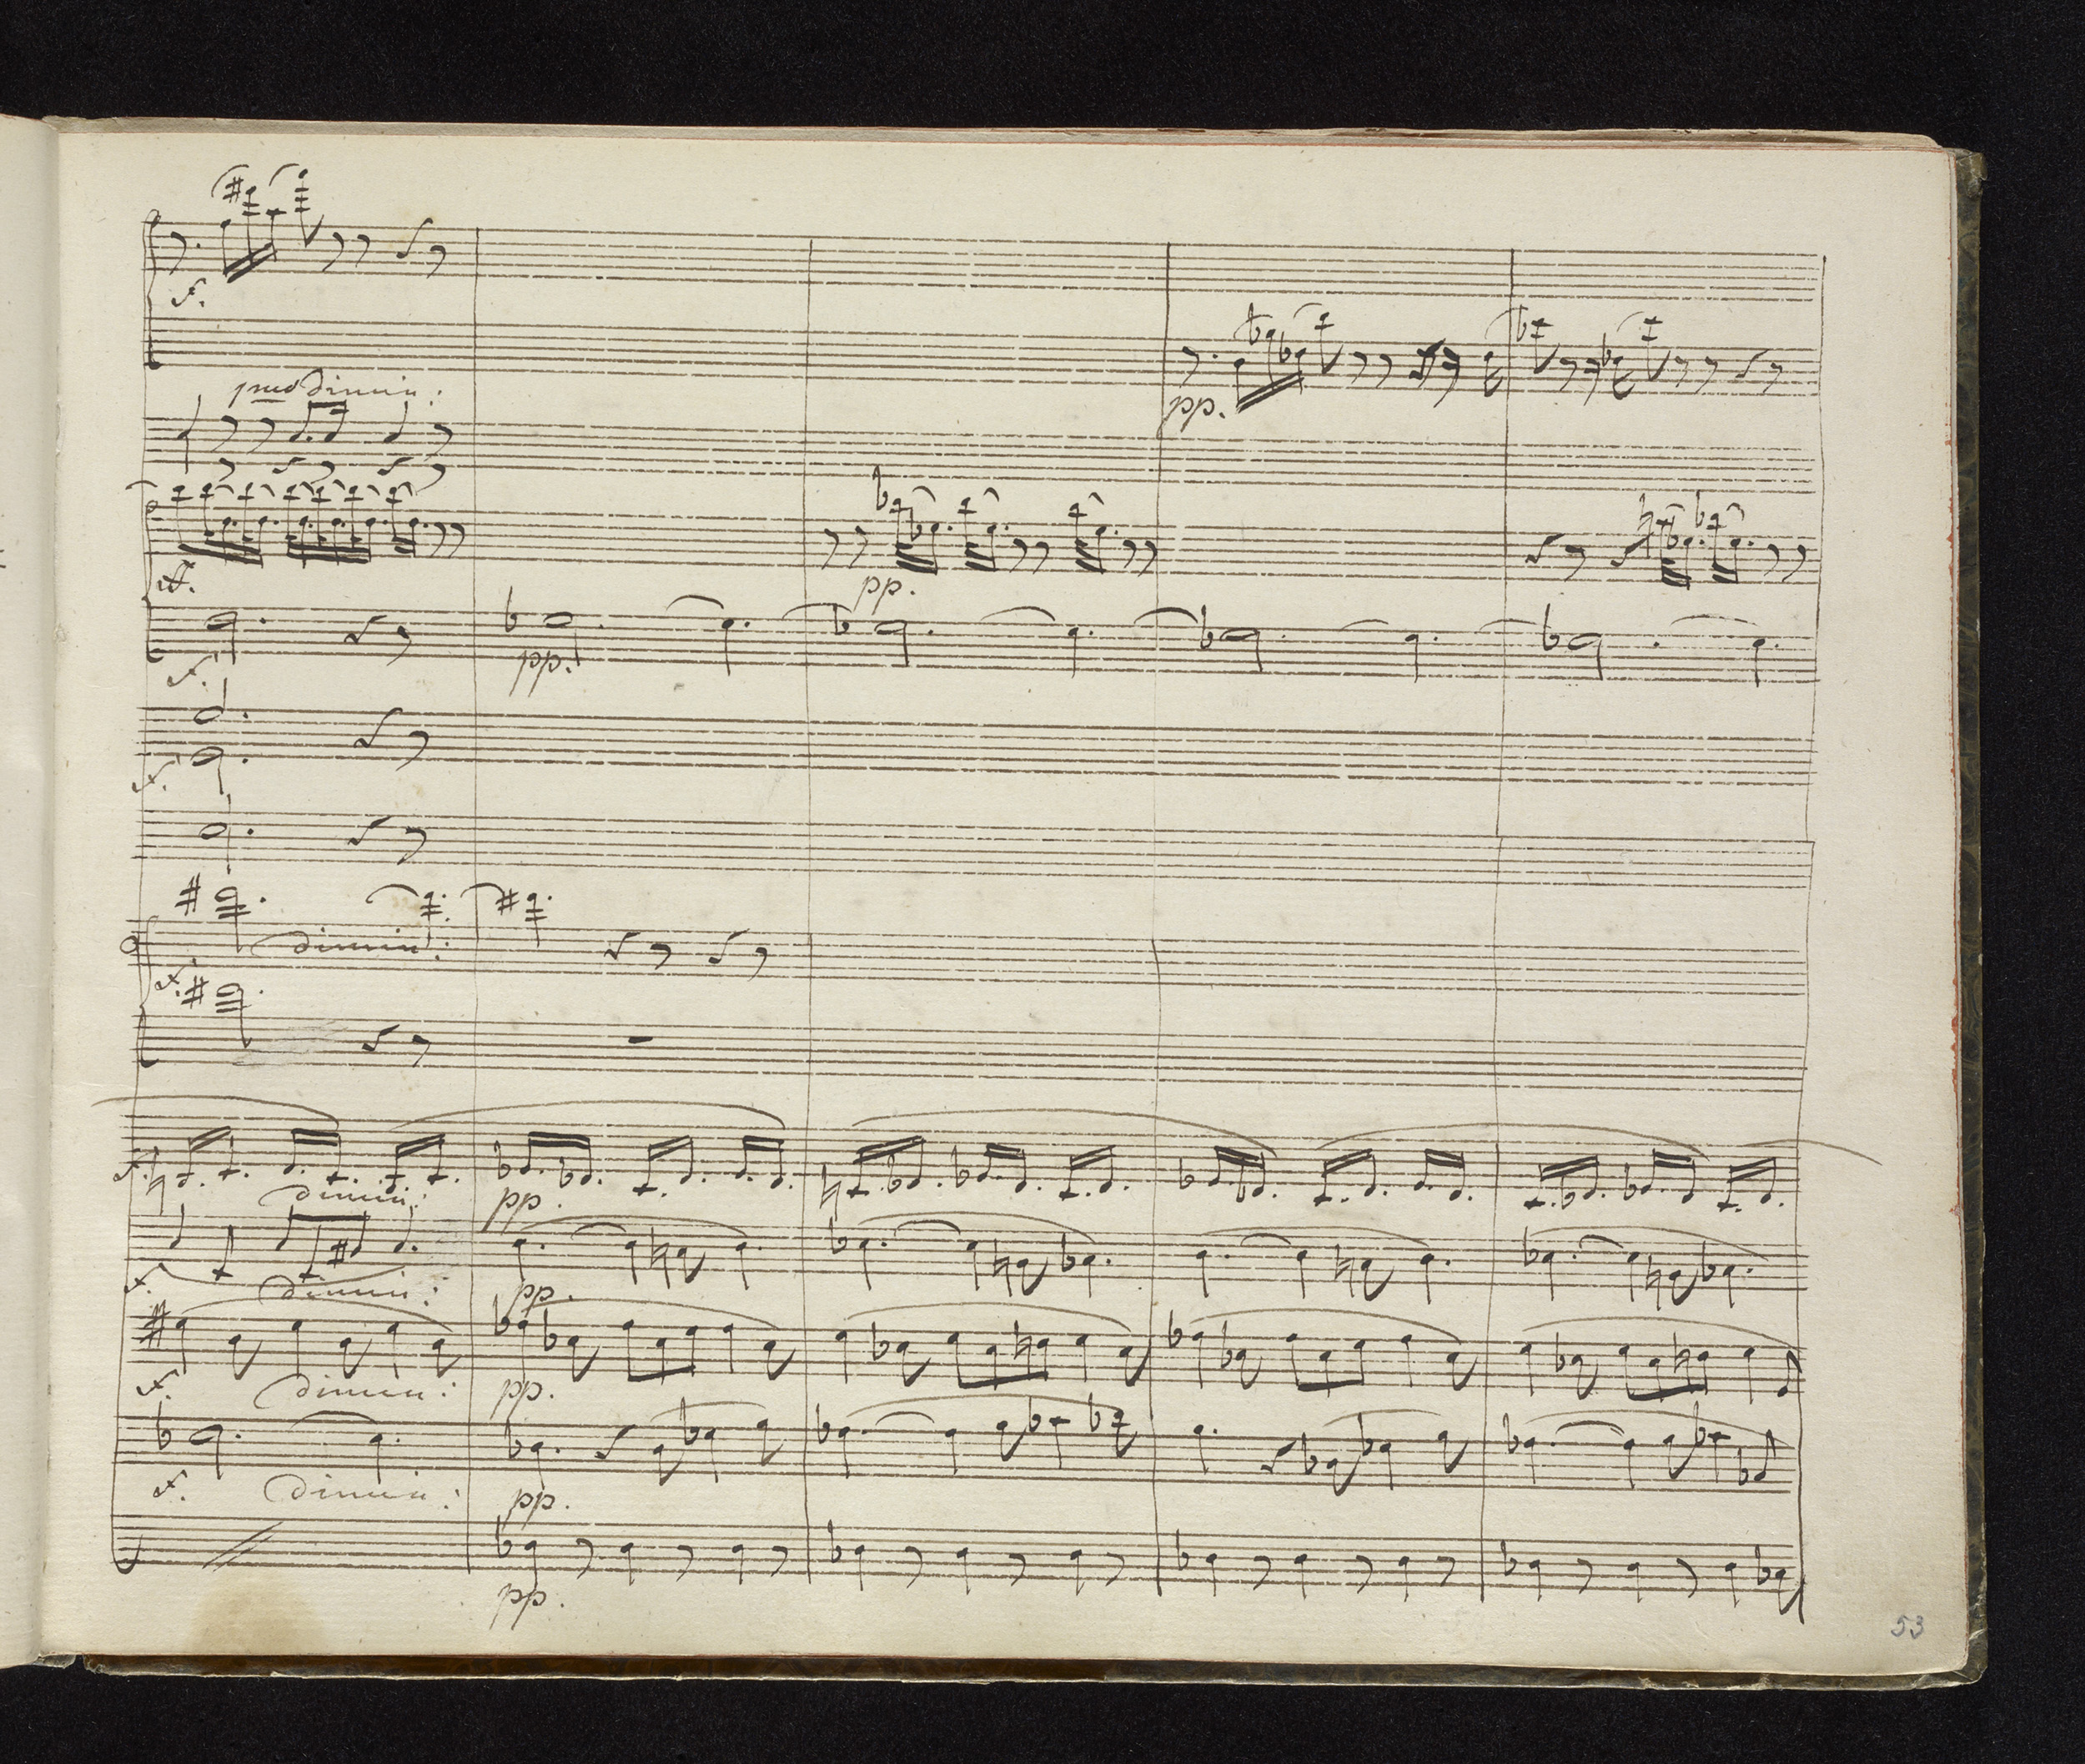 f.
pmo dimin:
pp.
ff.
pp.
f.
pp.
f.
dimin:
f.
f.
dimin:
pp.
f.
dimin:
pp.
f.
dimin:
pp.
f.
dimin:
pp.
pp.
53